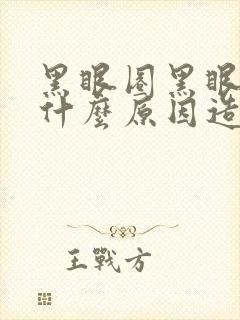 黑眼圈黑眼
什麼原因造
王戰方